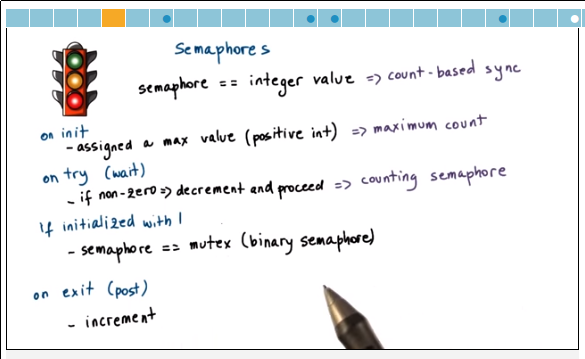 Semaphores
semaphore == integer value => count-based sync
on init
- assigned a max value (positive int) => maximum count
on try (wait)
- if non-zero => decrement and proceed => counting semaphore
If initialized with 1
- semaphore == mutex (binary semaphore)
on exit (post)
- increment